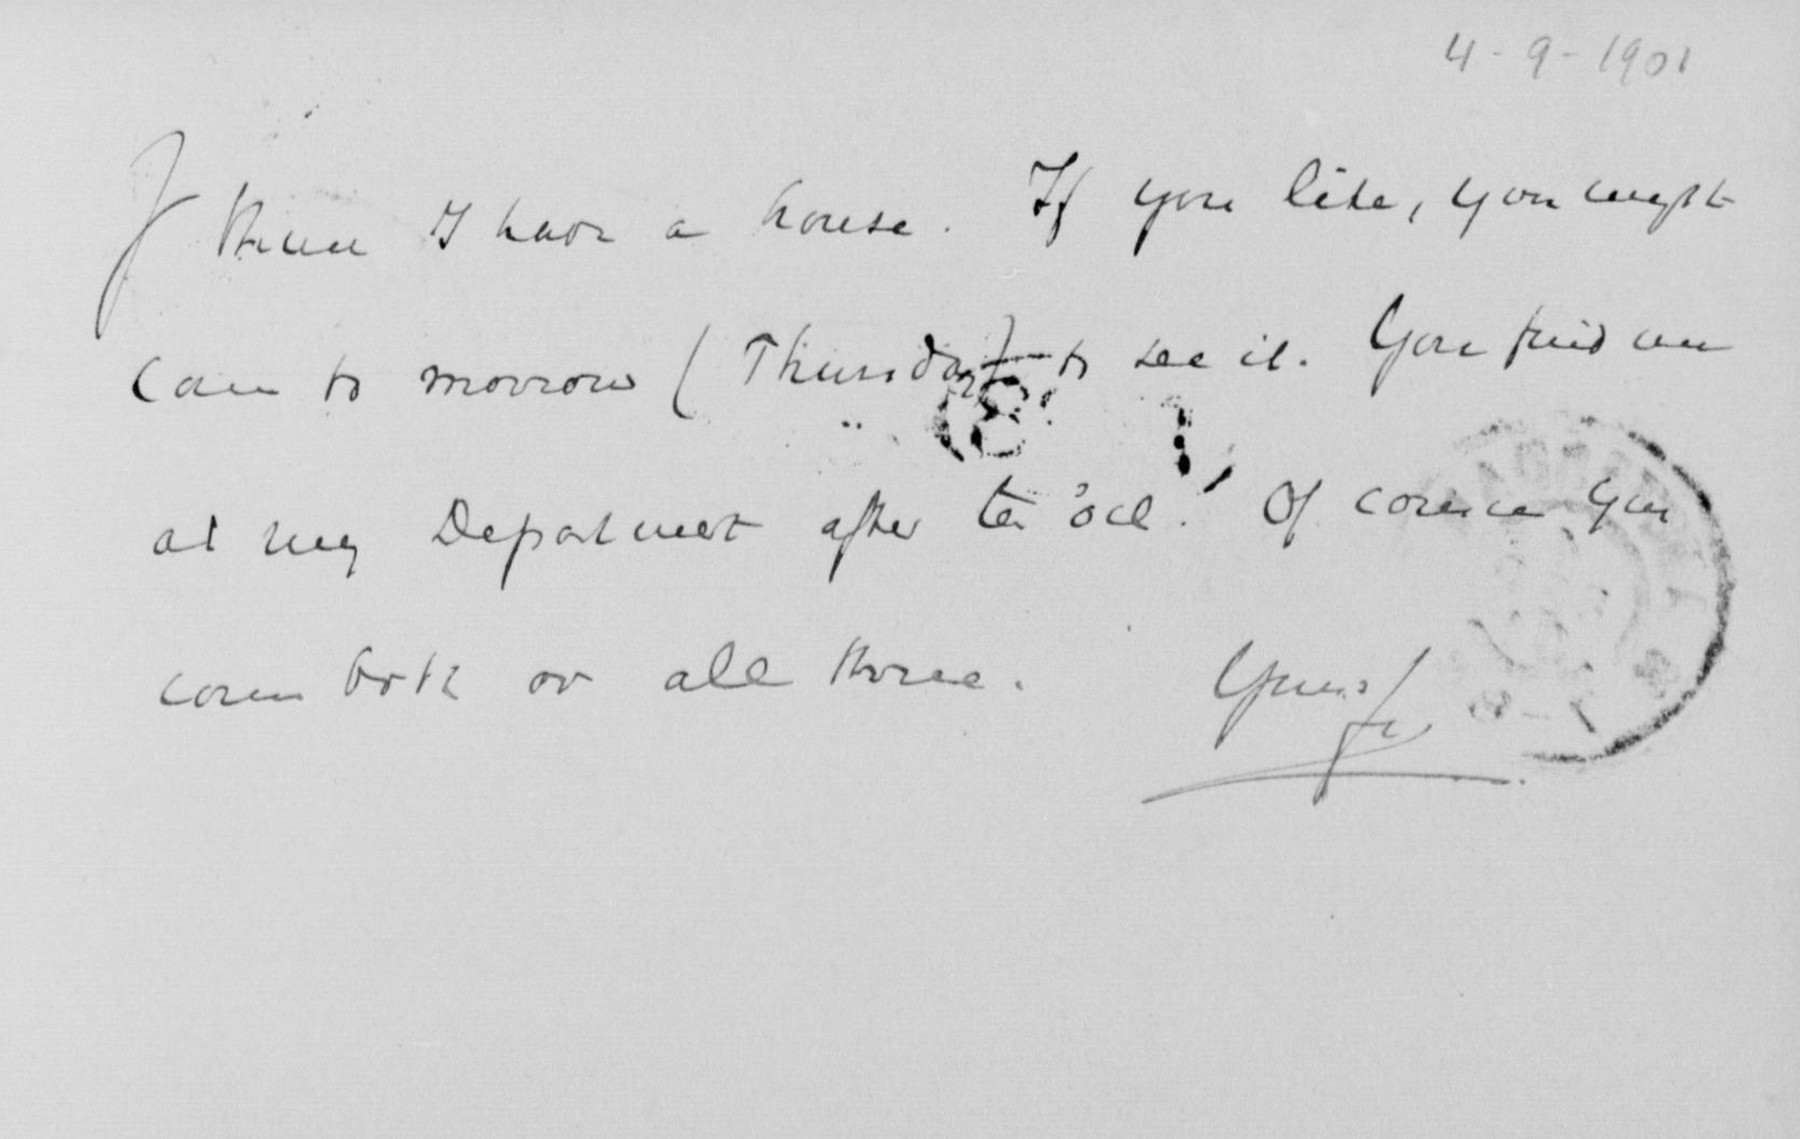 4-9-1901
I think I have a house. If you like, you might
come to morrow (Thursday) to see it. You find me
at my Department after ten 'ocl. Of course you
come both or all three. Yours